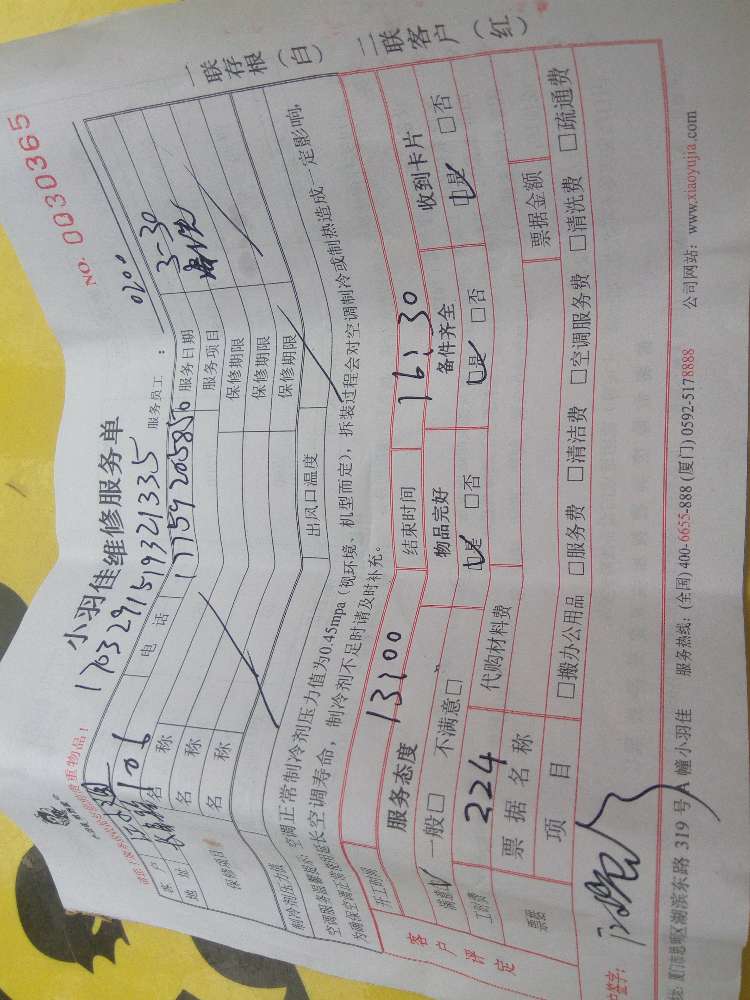 NO. 0030365
小羽佳维修服务单
170329151932 1335
服务员工：
0200
贵重物品！
客户
电话
17759205850
服务日期
3-30
地址
106
服务项目
名称
保修期限
名称
保修期限
保修项目
名称
保修期限
制冷剂压力值
出风口温度
空调正常制冷剂压力值为0.45mpa（视环境、机型而定），拆装过程会对空调制冷或制热造成一定影响，
延长空调寿命，制冷剂不足时请及时补充。
一联存根（白）
二联客户（红）
客户评定
开工时间
13:00
结束时间
16:30
服务态度
物品完好
备件齐全
收到卡片
满意
一般□
不满意□
是
□否
是
□否
是
□否
工时费
224
代购材料费
票据
票据名称
票据金额
项目
□搬办公用品
□服务费
□清洁费
□空调服务费
□清洗费
□疏通费
签字：
厦门市思明区湖滨东路 319 号 A 幢小羽佳
服务热线：(全国) 400-6655-888 (厦门) 0592-5178888
公司网站：www.xiaoyujia.com